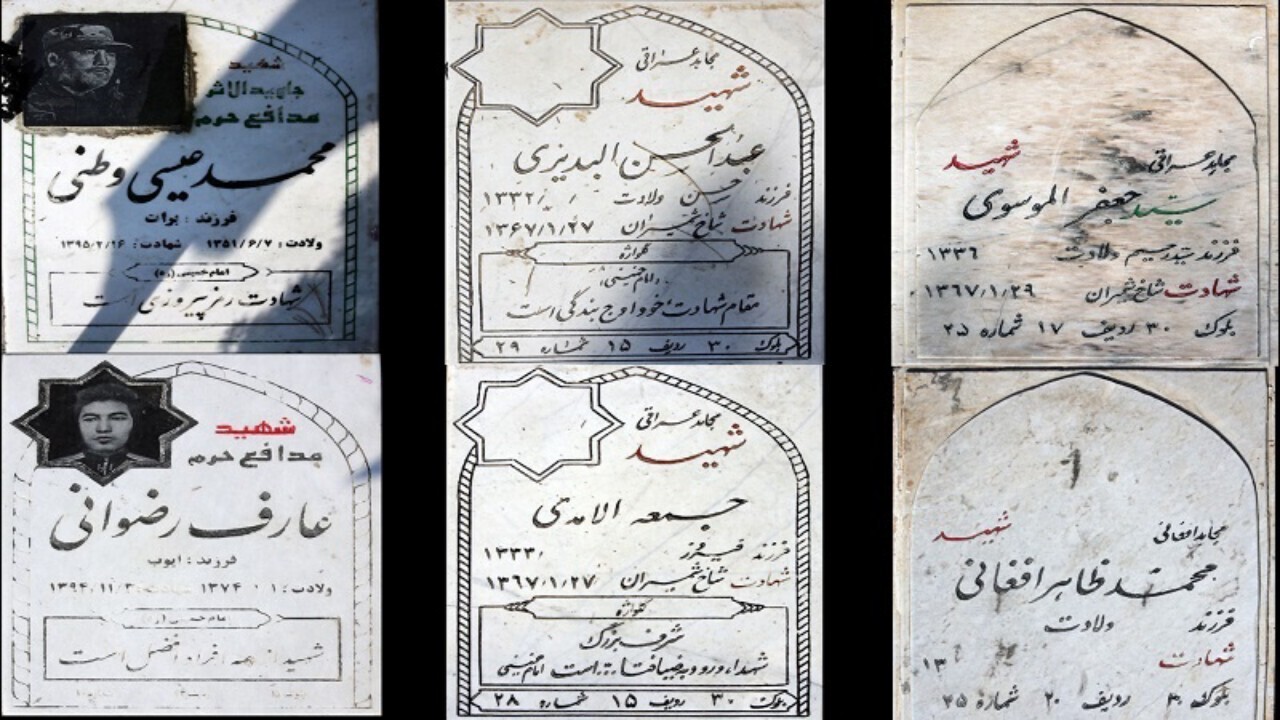 شهید
جاوید الاثر
مدافع حرم
محمد عیسی وطنی
فرزند : برات
ولادت : ۱۳۵۱/۶/۷ شهادت : ۱۳۹۵/۲/۱۶
امام خمینی (ره)
شهادت رمز پیروزی است
مجاهد عراقی
شهید
عبدالحسن البدیزی
فرزند حسن ولادت ۱۳۳۲
شهادت شاخ شمیران ۱۳۶۷/۱/۲۷
گلواژه
امام خمینی
مقام شهادت خود اوج بندگی است
بلوک ۳۰ ردیف ۱۵ شماره ۲۹
مجاهد عراقی شهید
سید جعفر الموسوی
فرزند سیدرحیم ولادت ۱۳۳۶
شهادت شاخ شمیران ۱۳۶۷/۱/۲۹
بلوک ۳۰ ردیف ۱۷ شماره ۲۵
شهید
مدافع حرم
عارف رضوانی
فرزند : ایوب
ولادت : ۱۳۷۴ شهادت : ۱۳۹۴/۱۱/۳
امام خمینی
شهید از همه افراد افضل است
مجاهد عراقی
شهید
جمعه الامدی
فرزند فیرز ۱۳۳۳
شهادت شاخ شمیران ۱۳۶۷/۱/۲۷
گلواژه
شرف بزرگ
شهدا، ورود به ضیافت است امام خمینی
بلوک ۳۰ ردیف ۱۵ شماره ۲۸
مجاهد افغانی شهید
محمد ظاهر افغانی
فرزند ولادت
شهادت ۱۳
بلوک ۳۰ ردیف ۲۰ شماره ۲۵